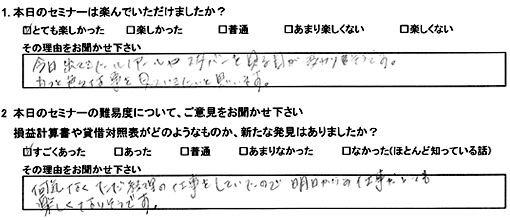 1. 本日のセミナーは楽んでいただけましたか？
☑とても楽しかった □楽しかった □普通 □あまり楽しくない □楽しくない
その理由をお聞かせ下さい
今日出てきた
もっと 仕事を 見ていきたいと思います。
2 本日のセミナーの難易度について、ご意見をお聞かせ下さい
損益計算書や貸借対照表がどのようなものか、新たな発見はありましたか？
☑すごくあった □あった □普通 □あまりなかった □なかった(ほとんど知っている話)
その理由をお聞かせ下さい
何気なくただ経理の仕事をしていたので明日からの仕事がとても
楽しくなりそうです。